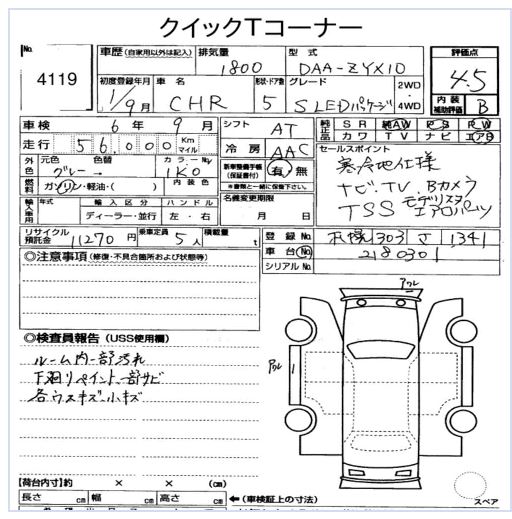 クイックTコーナー
No. 4119
車歴 (自家用以外は記入) 排気量 1800 型式 DAA-ZYX10
評価点 4.5
初度登録年月 1/9月 車名 CHR 形状・ドア数 5 グレード S LEDパッケージ 2WD・4WD
内装補助評価 B
車検 6年9月 シフト AT 純正品 SR 純AW PS PW
カワ TV ナビ エアB
走行 56,000 Km マイル 冷房 AAC
セールスポイント
寒冷地仕様
ナビ.TV.Bカメラ
モデリスタ
TSS エアロパーツ
外色 元色 グレー→ 色替 カラーNo. 1K0
新車整備手帳(保証書付) 有・無
※書類と一緒に保管下さい。
燃料 ガソリン・軽油・( ) 内装色
名義変更期限 月 日
輸入車用 年式 輸入区分 ハンドル
ディーラー・並行 左・右
リサイクル預託金 11270円 乗車定員 5人 積載量 t
登録No. 札幌 303 さ 1341
車台No. 2180301
シリアルNo.
◎注意事項 (修復・不具合箇所および状態等)
◎検査員報告 (USS使用欄)
ルーム内一部汚れ
下廻リペイント、一部サビ
各ウスキズ・小キズ
【荷台内寸】約 × × (cm)
長さ cm 幅 cm 高さ cm ←(車検証上の寸法)
スペア